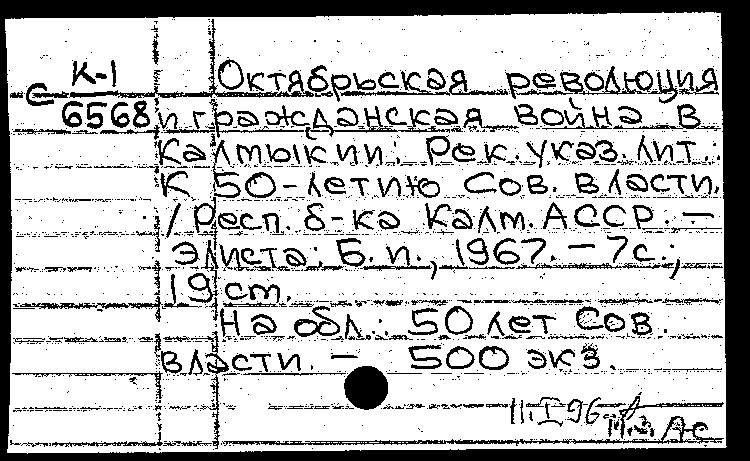 К-1 Октябрьская революция
С 6568 и гражданская война в
Калмыкии: Рек. указ. лит.:
К 50-летию Сов. власти.
/Респ. б-ка Калм. АССР. —
Элиста: Б. и., 1967. — 7с.;
19 cm.
На обл.: 50 лет Сов.
власти. — 500 экз.
11.I 96